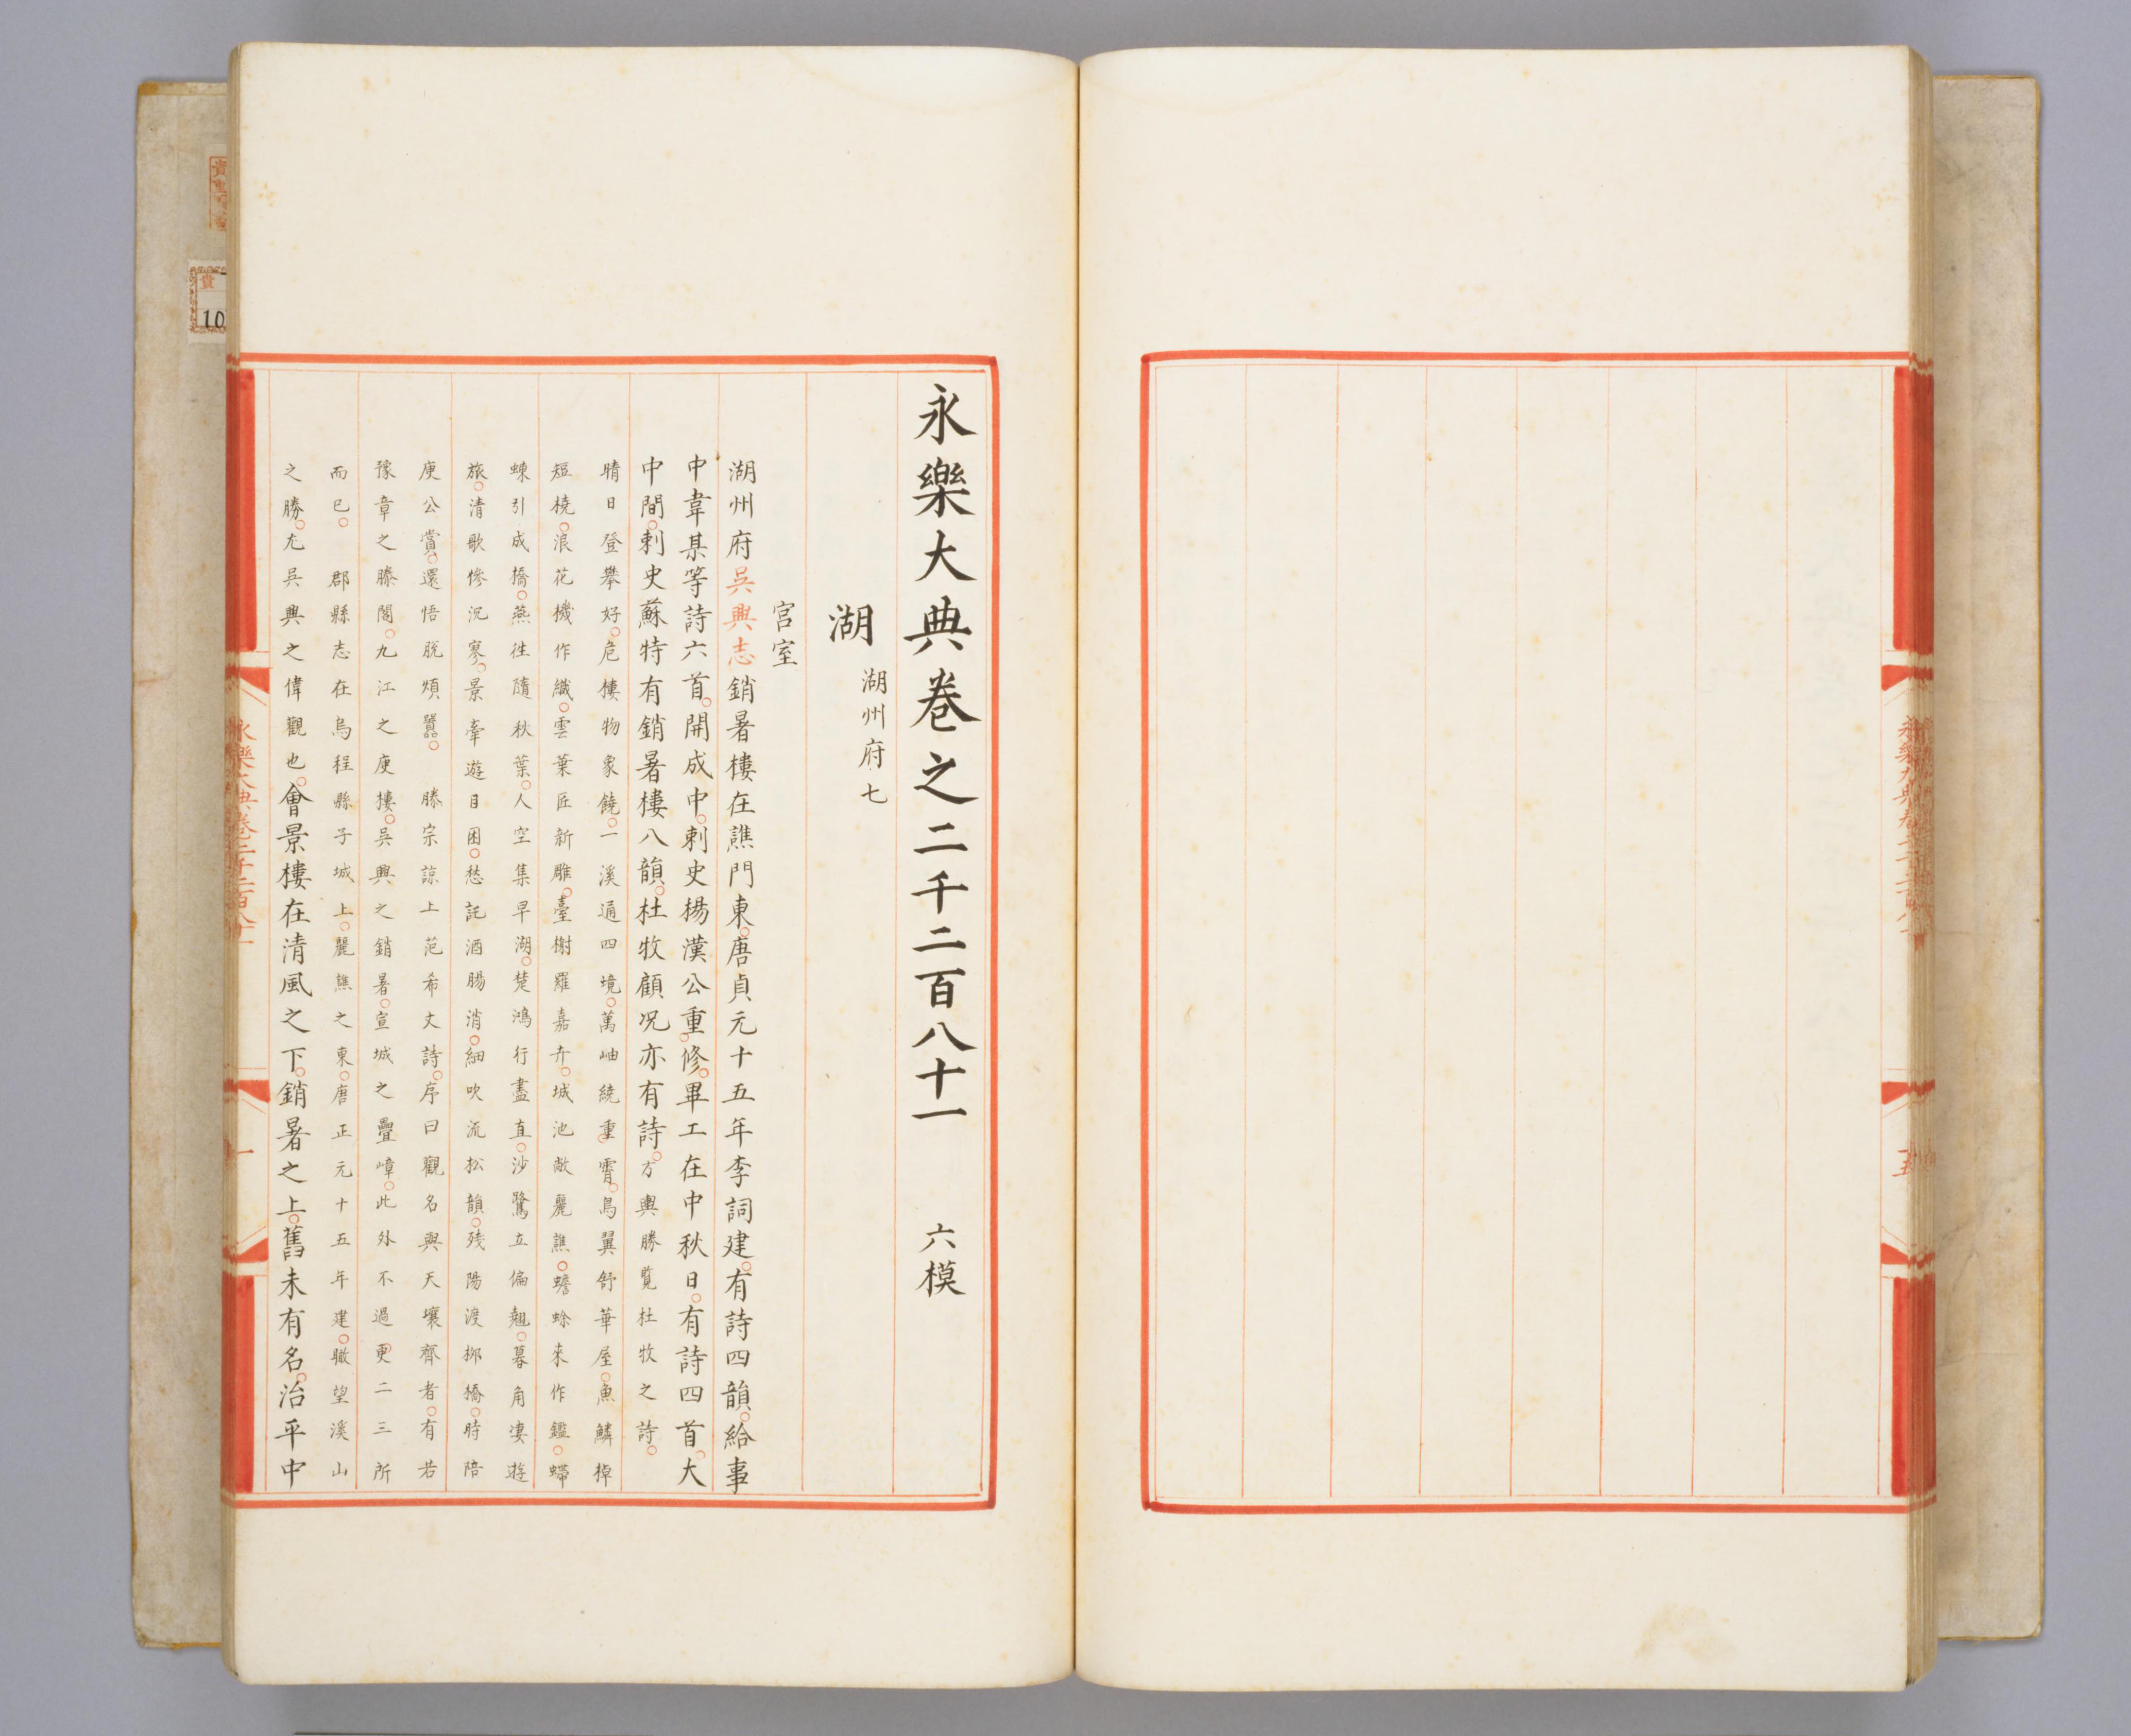 永樂大典卷之二千二百八十一　六模
湖　湖州府七
宫室
湖州府吳興志銷暑樓在譙門東。唐貞元十五年李詞建。有詩四韻。給事
中韋某等詩六首。開成中。刺史楊漢公重修。畢工在中秋日。有詩四首。大
中間。刺史蘇特有銷暑樓八韻。杜牧顧况亦有詩。方輿勝覽杜牧之詩。
晴日登攀好。危樓物象饒。一溪通四境。萬岫繞重霄。鳥翼舒華屋。魚鱗棹
短橈。浪花機作織。雲葉匠新雕。臺榭羅嘉卉。城池敞麗譙。蟾蜍來作鑑。螮
蝀引成橋。燕徃隨秋葉。人空集早湖。楚鴻行盡直。沙鷺立偏翹。暮角凄遊
旅。清歌慘沉寥。景牽遊目困。愁託酒腸消。細吹流松韻。殘陽渡栁橋。時陪
庾公賞。還悟脫煩嚣。　滕宗諒上范希文詩。序曰觀名與天壤齊者。有若
豫章之滕閣。九江之庾樓。吳興之銷暑。宣城之疊嶂。此外不過更二三所
而已。　郡縣志在烏程縣子城上。麗譙之東。唐正元十五年建。瞰望溪山
之勝。尤吳興之偉觀也。會景樓在清風之下。銷暑之上。舊未有名。治平中
永樂大典卷二千二百八十一
一